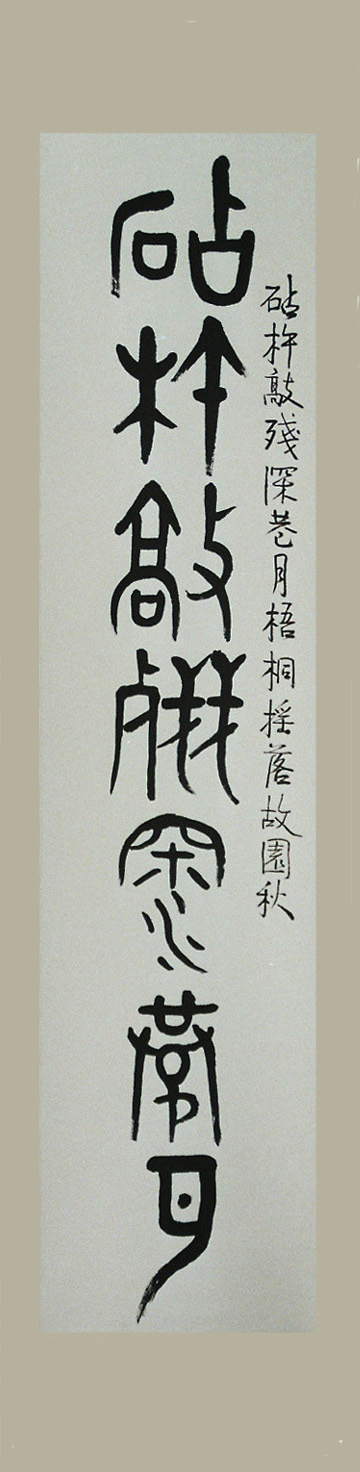 砧杵敲殘深巷月梧桐搖落故園秋
砧杵敲殘深巷月